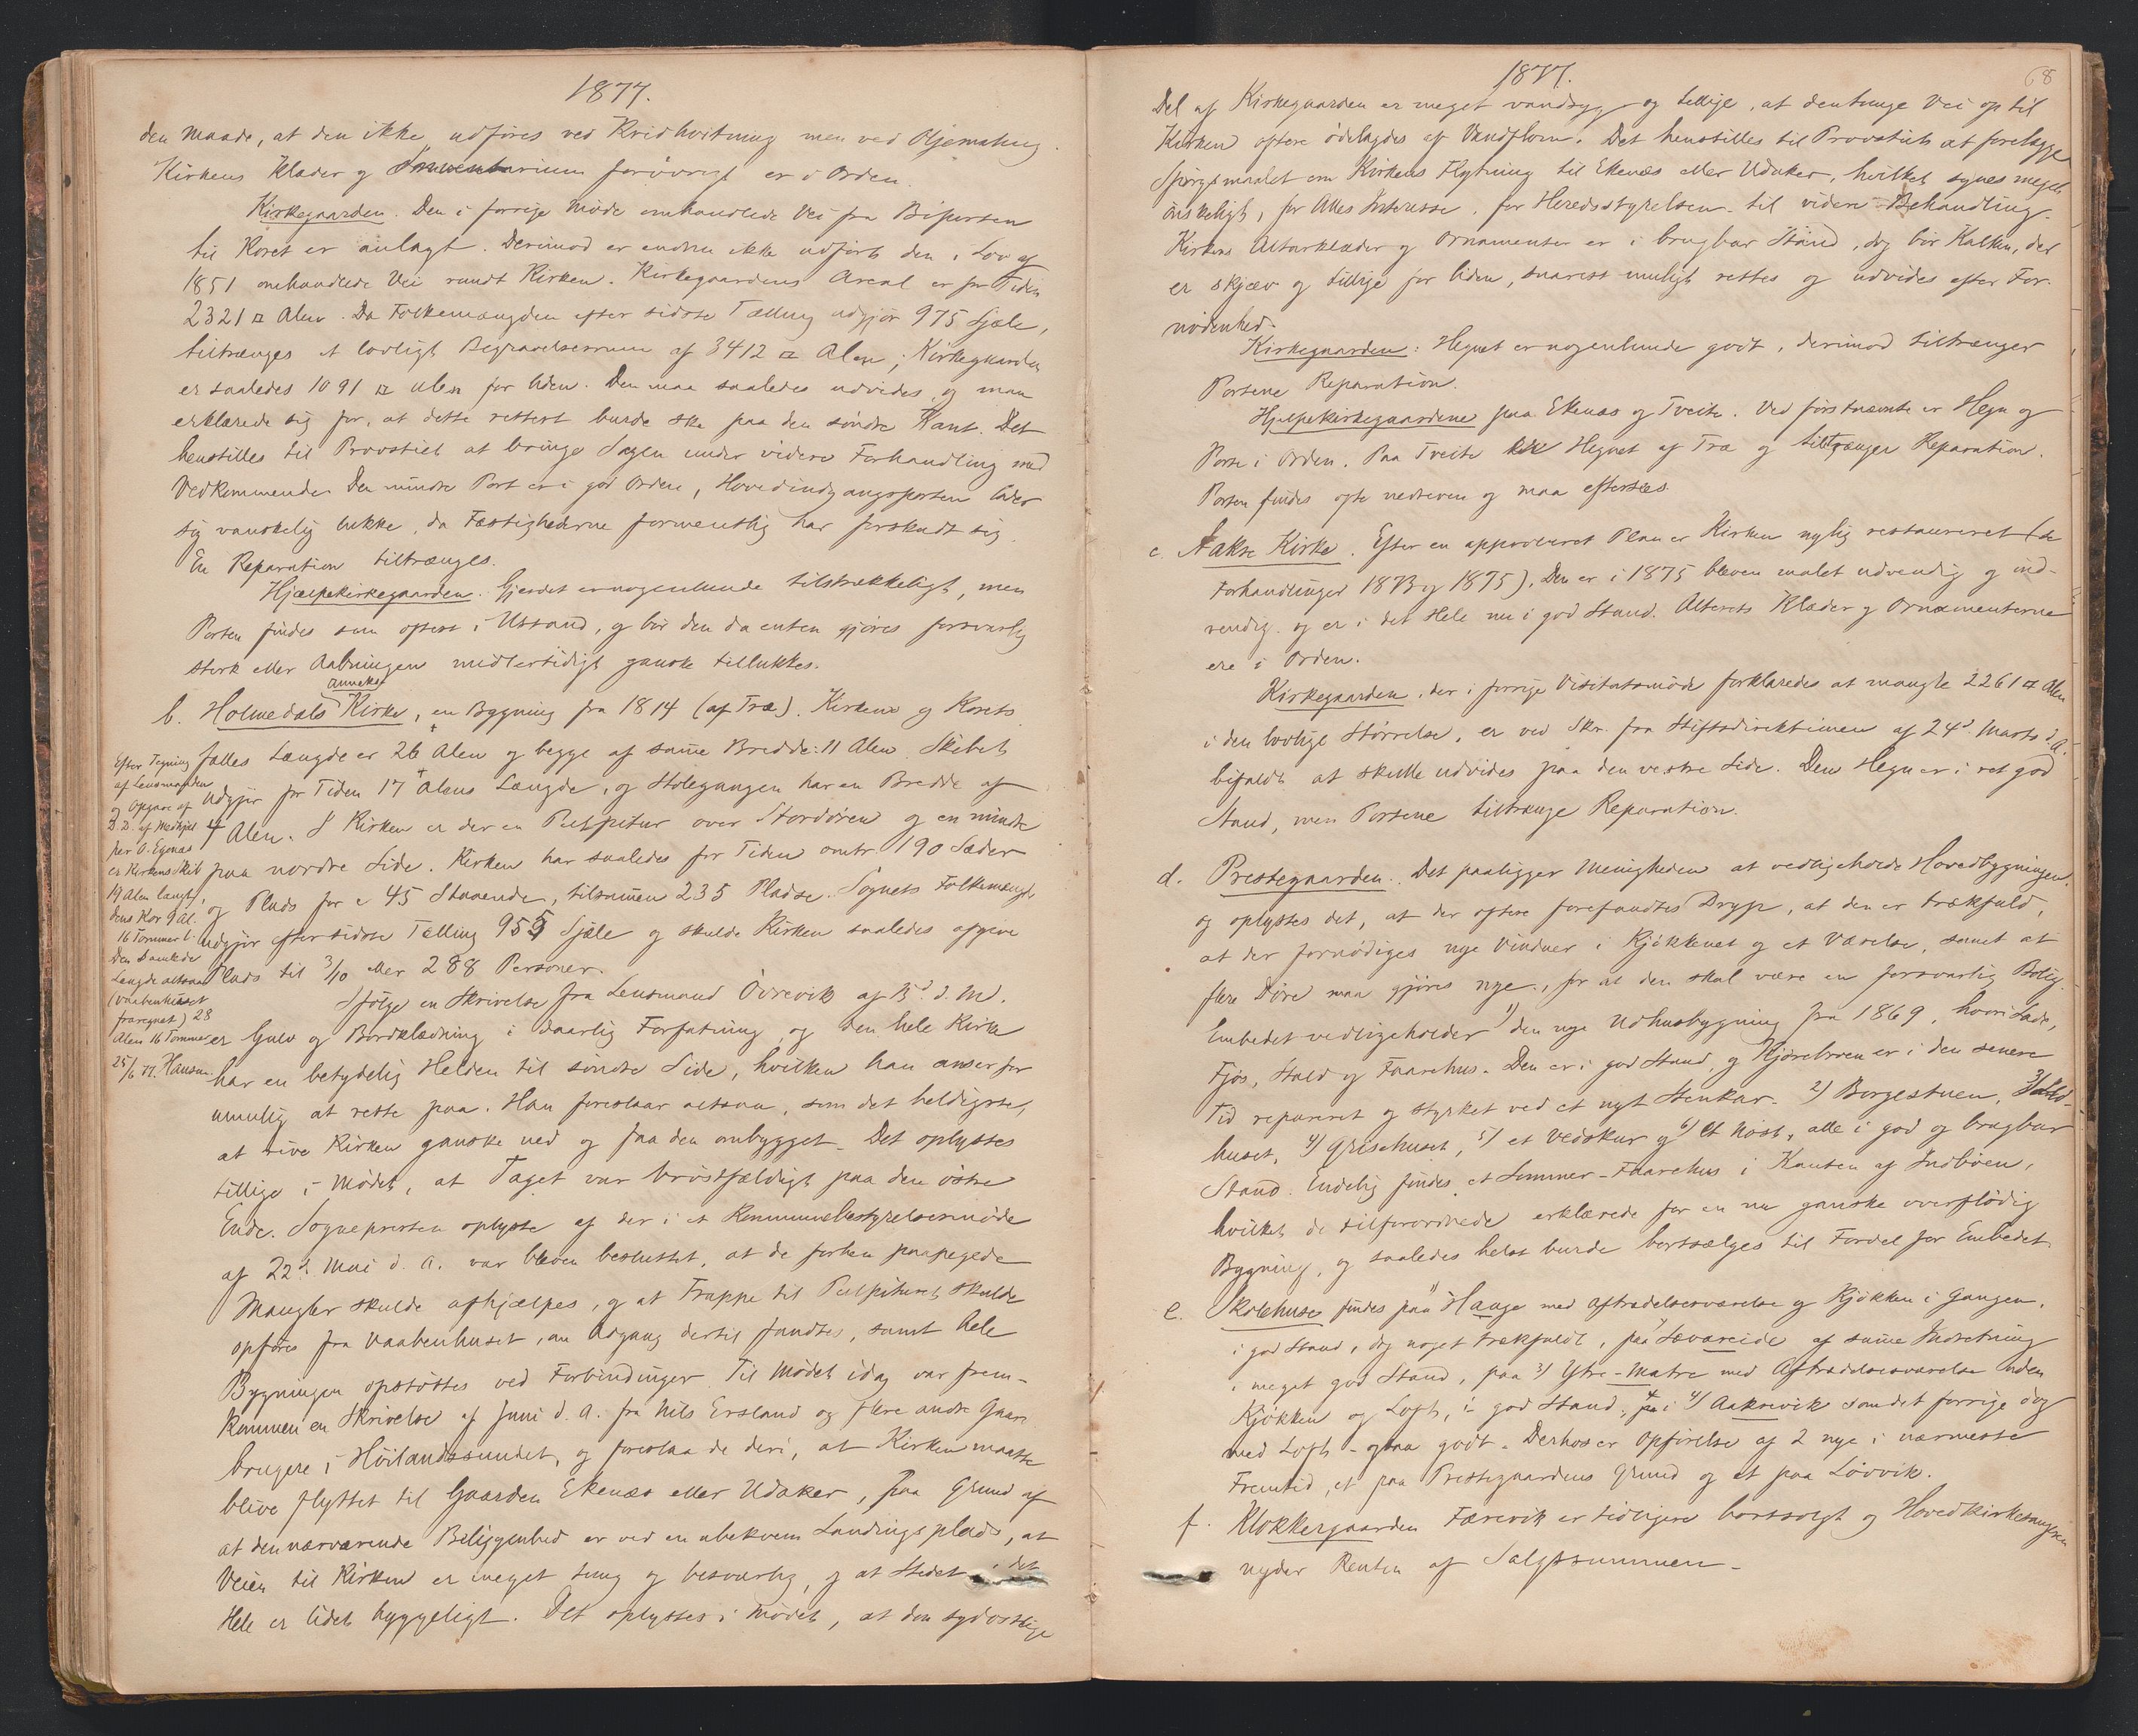 1877.
den Maade, at den ikke udføres ved Kridhvitning men ved Oljemaling.
Kirkens Klæder og Inventarium forøvrigt er i Orden.
Kirkegaarden. Den i forrige Møde omhandlede Vei fra Biporten
til Koret er anlagt. Derimod er endnu ikke udført den i Lov af
1851 omhandlede Vei rundt Kirken. Kirkegaardens Areal er for Tiden
2321 □ Alen. Da Folkemængden efter sidste Tælling udgjør 975 Sjæle,
tiltrænges et lovligt Begravelsesrum af 3412 □ Alen; Kirkegaarden
er saaledes 1091 □ Alen for liden. Den maa saaledes udvides, og man
erklærede sig for, at dette rettest burde ske paa den søndre Kant. Det
henstilles til Provstiet at bringe Sagen under videre Forhandling med
Vedkommende. Den mindre Port er i god Orden, Hovedindgangsporten lader
sig vanskelig lukke, da Fæstighederne formentlig har forskudt sig.
En Reparation tiltrænges.
Hjælpekirkegaarden. Gjerdet er nogenlunde tilstrækkeligt, men
Porten findes som oftest i Ustand, og bør den da enten gjøres forsvarlig
sterk eller Aabningen midlertidigt ganske tillukkes.
b. Holmedals Anneks Kirke, en Bygning fra 1814 (af Træ). Kirkens og Korets
fælles Længde er 26 Alen og begge af samme Bredde: 11 Alen. Skibet
udgjør for Tiden 17 Alens Længde, og Stolegangen har en Bredde af
4 Alen. I Kirken er der en Pulpitur over Stordøren og en mindre
paa nordre Side. Kirken har saaledes for Tiden omtr. 190 Sæder
og Plads for c 45 Staaende, tilsammen 235 Pladse. Sognets Folkemængde
udgjør efter sidste Tælling 955 Sjæle og skulde Kirken saaledes afgive
Plads til 3/10 eller 288 Personer.
Efter Tegning
af Lensmanden
og Opgave af
per A. Egenæs
er Kirkens Skib
19 Alen langt,
dens Kor 9 Al.
16 Tommer l.
Den samlede
Længde altsaa
(Vaabenhuset
fraregnet) 28
Alen 16 Tommer
25/6 77. Hansen.
Ifølge en Skrivelse fra Lensmand Övrevik af 15d d. M.
er Gulv og Bordklædning i daarlig Forfatning, og den hele Kirke
har en betydelig Helden til søndre Side, hvilken han anser for
umulig at rette paa. Han foreslaar altsaa, som det heldigste,
at rive Kirken ganske ned og faa den ombygget. Det oplystes
tillige i Mødet, at Taget var brøstfældigt paa den østre
Ende. Sognepresten oplyste af der i et Kommunebestyrelsesmøde
af 22d Mai d. A. var bleven besluttet, at de forhen paapegede
Mangler skulde afhjælpes, og at Trappe til Pulpituret skulde
opføres fra Vaabenhuset, om Adgang dertil fandtes, samt hele
Bygningen opstøttes ved Forbindinger. Til Mødet idag var frem-
kommen en Skrivelse af Juni d. A. fra Nils Ersland og flere andre Gaard-
brugere i Höilandssundet, og foreslaa de deri, at Kirken maatte
blive flyttet til Gaarden Ekenæs eller Udaker, paa Grund af
at den nærværende Beliggenhed er ved en ubekvem Landingsplads, at
Veien til Kirken er meget tung og besværlig, og at Stedet i det
Hele er lidet hyggeligt. Det oplystes i Mødet, at den sydøstlige
1877.
68
Del af Kirkegaarden er meget vandsyg og tillige, at den tunge Vei op til
Kirken oftere ødelagdes af Vandflom. Det henstilles til Provstiet at forelægge
Spørgsmaalet om Kirkens Flytning til Ekenæs eller Udaker, hvilket synes meget
ønskeligt, for Alles Interesse, for Heredsstyrelsen til videre Behandling.
Kirkens Alterklæder og Ornamenter er i brugbar Stand, dog bør Kalken, der
er skjæv og tillige for liden, snarest muligt rettes og udvides efter For-
nødenhed.
Kirkegaarden: Hegnet er nogenlunde godt, derimod tiltrænger
Portene Reparation.
Hjelpekirkegaardene paa Ekenæs og Tveite. Ved førstnævnte er Hegn og
Port i Orden. Paa Tveite er Hegnet af Træ og tiltrænger Reparation.
Porten findes ofte nedreven og maa eftersees.
c. Aakre Kirke. Efter en approberet Plan er Kirken nylig restaureret (se
Forhandlinger 1873 og 1875). Den er i 1875 bleven malet udvendig og ind-
vendig og er i det Hele nu i god Stand. Alterets Klæder og Ornamenterne
ere i Orden.
Kirkegaarden, der i forrige Visitatsmøde forklaredes at mangle 2261 □ Alen
i den lovlige Størrelse, er ved Skr. fra Stiftsdirektionen af 24d Marts d. A.
bifaldt at skulle udvides paa den vestre Side. Dens Hegn er i ret god
Stand, men Portene tiltrænge Reparation.
d. Prestegaarden. Det paaligger Menigheden at vedligeholde Hovedbygningen,
og oplystes det, at der oftere forefandtes Dryp, at den er trækfuld,
at der fornødiges nye Vinduer i Kjøkkenet og et Værelse, samt at
flere Døre maa gjøres nye, for at den skal være en forsvarlig Bolig.
Embedet vedligeholder 1) den nye Udhusbygning fra 1869, hvori Lade,
Fjøs, Stald og Faarehus. Den er i god Stand, og Kjørebroen er i den senere
Tid repareret og styrket ved et nyt Stenkar. 2) Borgestuen, 3) Ild-
huset, 4) Grisehuset, 5) et Vedskur og 6) et Nøst, alle i god og brugbar
Stand. Endelig findes et Sommer-Faarehus i Kanten af Indbøen,
hvilket de tilforordnede erklærede for en nu ganske overflødig
Bygning, og saaledes helst burde bortsælges til Fordel for Embedet.
e. Skolehuse findes paa 1) Hauge med Aftrædelsesværelse og Kjøkken i Gangen,
i god Stand, dog noget trækfuldt, paa 2) Sævareide af samme Indretning
i meget god Stand, paa 3) Ytre-Matre med Aftrædelsesværelse uden
Kjøkken og Loft, i god Stand, i 4) Aakrevik som det forrige dog
med Loft - ogsaa godt. Derhos er Opførelse af 2 nye i nærmeste
Fremtid, et paa Prestegaardens Grund og et paa Løvvik.
f. Klokkergaarden Færevik er tidligere bortsolgt og Hovedkirkesangeren
nyder Renten af Salgssummen -